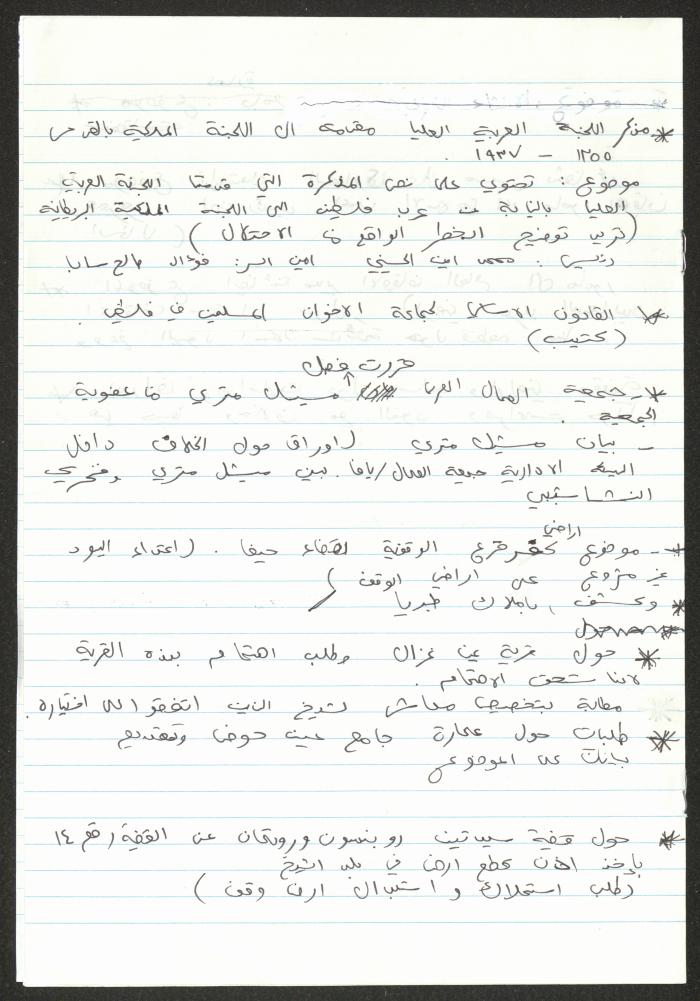 * مذكرة اللجنة العربية العليا مقدمة الى اللجنة الملكية بالقدس
١٣٥٥ - ١٩٣٧ .
موضوع تحتوي على نص المذكرة التي قدمتها اللجنة العربية
العليا بالنيابة عن عرب فلسطين الى اللجنة الملكية البريطانية
(تريد توضيح الخطر الواقع من الاحتلال)
رئيس: محمد امين الحسيني امين السر: فؤاد صالح سابا
* القانون الاساسي لجماعة الاخوان المسلمين في فلسطين.
(كتيب)
قررت فصل
* - جمعية العمال العرب ميشيل متري من عضوية
الجمعية.
- بيان ميشيل متري (اوراق حول الخلاف داخل
الهيئة الادارية جمعية العمال/يافا. بين ميشيل متري وفخري
النشاشيبي
* - موضوع اراضي الوقفية لقضاء حيفا. (اعتداء اليهود
غير مشروع على اراضي الوقف)
* وكشف باملاك طبريا
* حول قرية عين غزال وطلب اهتمام بهذه القرية
لانها تستحق الاهتمام.
* مطالبة بتخصيص معاش لشيخ الذين اتفقوا على اختياره.
* طلبات حول عمارة جامع عين حوض وتقديم
بيانات عن الموضوع
* حول قضية سيدتين روبنسون وروتمان عن القضية رقم ١٤
يأخذ الاذن بقطع ارض في بلد الشيخ
(طلب استملاك و استبدال ارض وقف)